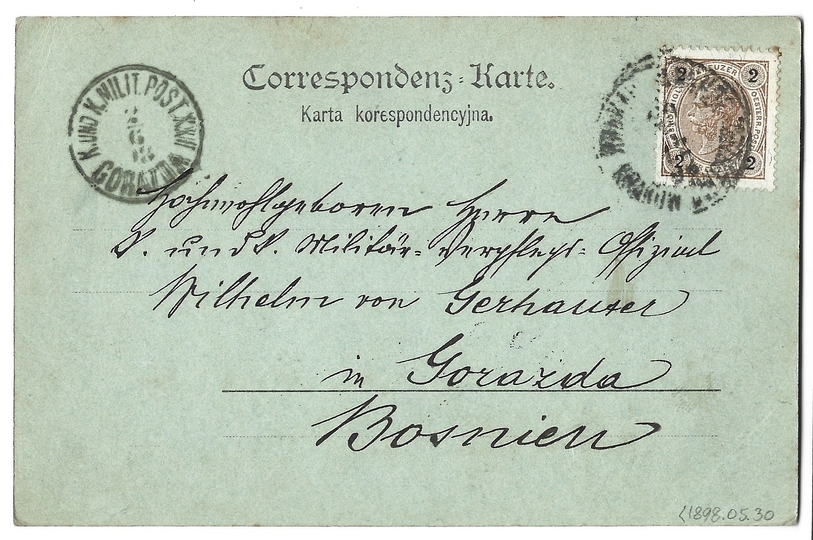 Correspondenz-Karte.
Karta korespondencyjna.
K. UND K. MILIT. POST XXII
2
6
GORAŽDA
2 2
2 2
KRAKÓW
Hochwohlgeboren Herrn
k. und k. Militär-Verpflegs-Offizial
Wilhelm von Gerhauser
in Gorazda
Bosnien
1898.05.30